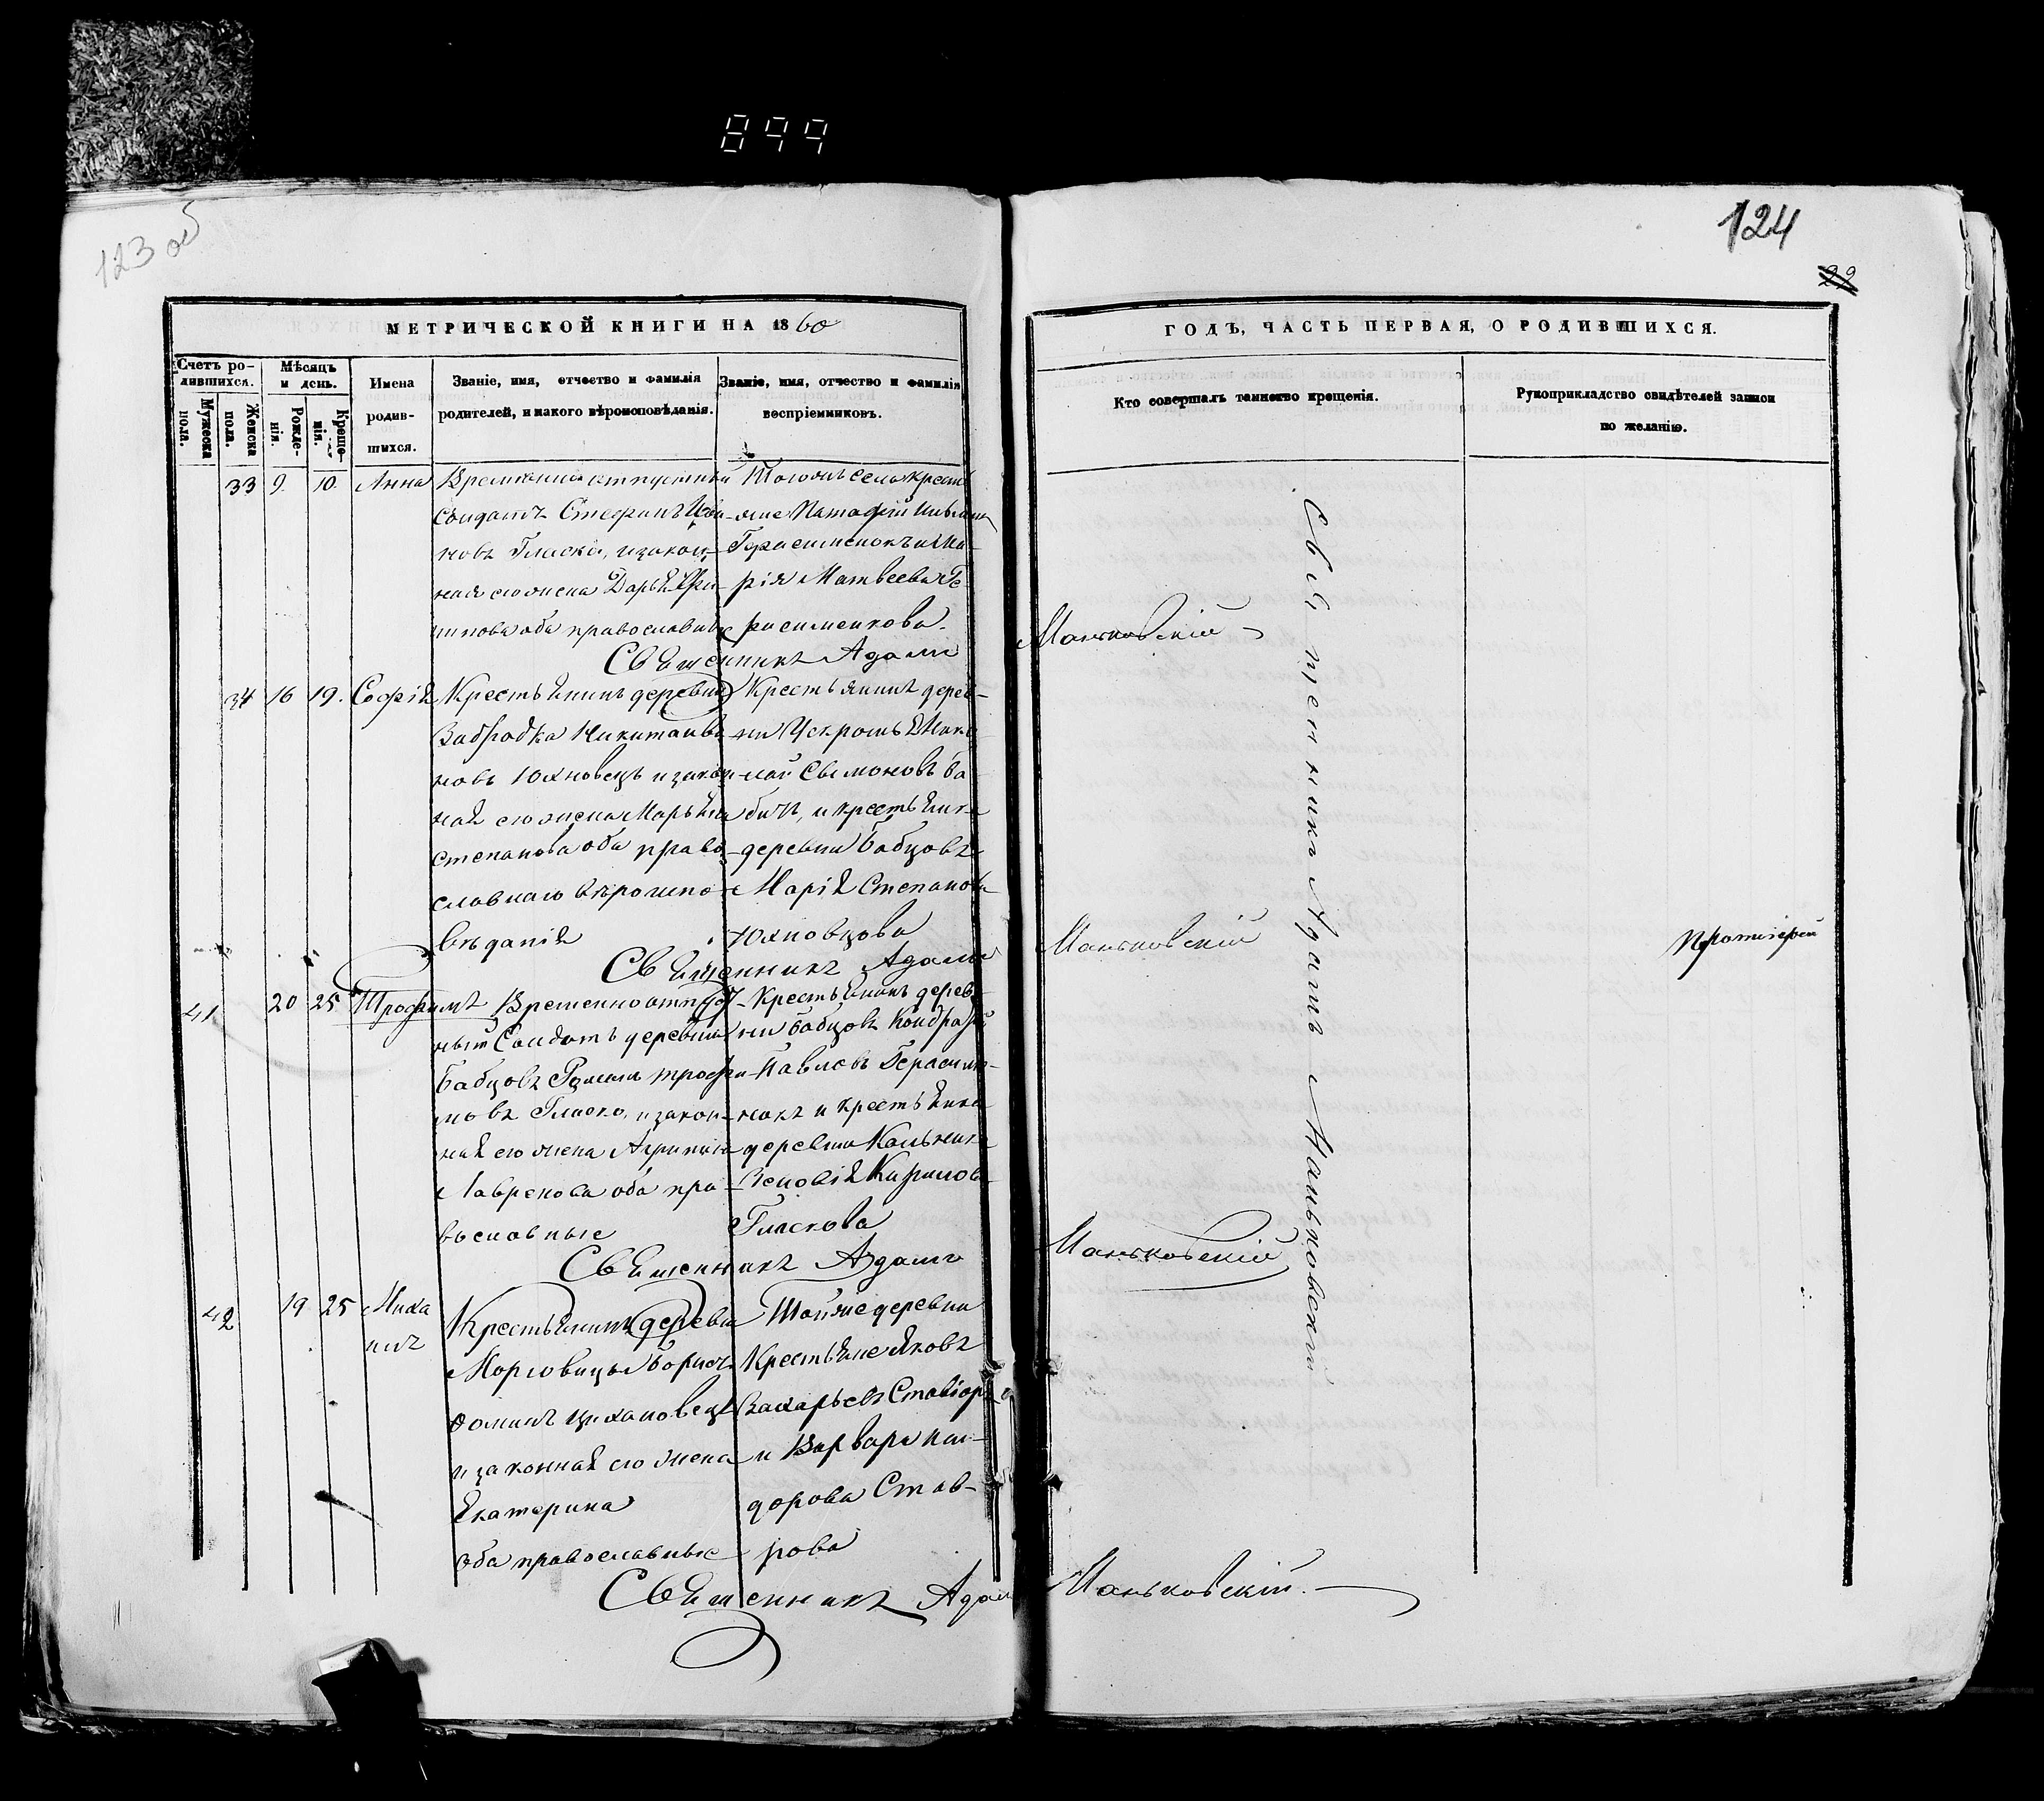 899
123 об
124
22
МЕТРИЧЕСКОЙ КНИГИ НА 1860
ГОДЪ, ЧАСТЬ ПЕРВАЯ, О РОДИВШИХСЯ.
Счетъ родившихся.
Мужеска пола.
Женска пола.
Мѣсяцъ и день.
Рожденія.
Крещенія.
Имена родившихся.
Званіе, имя, отчество и фамилія
родителей, и какого вѣроисповѣданія.
Званіе, имя, отчество и фамилія
воспріемниковъ.
Кто совершалъ таинство крещенія.
Рукоприкладство свидѣтелей записи
по желанію.
33 9. 10. Анна
Временно отпускной
Солдатъ Стефанъ
новъ Гласко, и закон-
ная его жена Дарья Фи-
липова оба православные
Тогожъ села крестья-
яне
Герасименокъ и Ма-
рія Матвеева Ге-
расименкова.
Священникъ Адамъ Маньковскій
34 16 19. Софія
Крестьянинъ деревни
Забродка Никита Ива-
новъ Юхновецъ и закон-
ная его жена Марья
Степанова оба право-
славнаго вѣроиспо-
вѣданія
Крестьянинъ дерев-
ни
лай Сымоновъ Ба-
бичъ, и крестьянка
деревни Бабцовъ
Марія Степанова
Юхновцова
Священникъ Адамъ Маньковскій
41 20 25 Трофимъ
Временно отпуск-
ный Солдатъ деревни
Бабцовъ Роман Трофи-
мовъ Гласко, и закон-
ная его жена Агрипина
Лавренова оба пра-
вославные
Крестьянинъ дерев-
ни Бабцовъ Кондратій
Павловъ Герасиме-
нокъ и крестьянка
деревни
Зеновія Кирилова
Гласкова
Священникъ Адамъ Маньковскій
42 19 25 Миха
илъ
Крестьянинъ деревни
Морговицы Борисъ
Фоминъ Цихановецъ
и законная его жена
Екатерина
оба православные
Той же деревни
Крестьяне Яковъ
Захарьевъ Ставіоръ
и Варвара
дорова Став-
рова
Священникъ Адамъ Маньковскій.
Священникъ Адамъ Маньковскій
Протоіерей